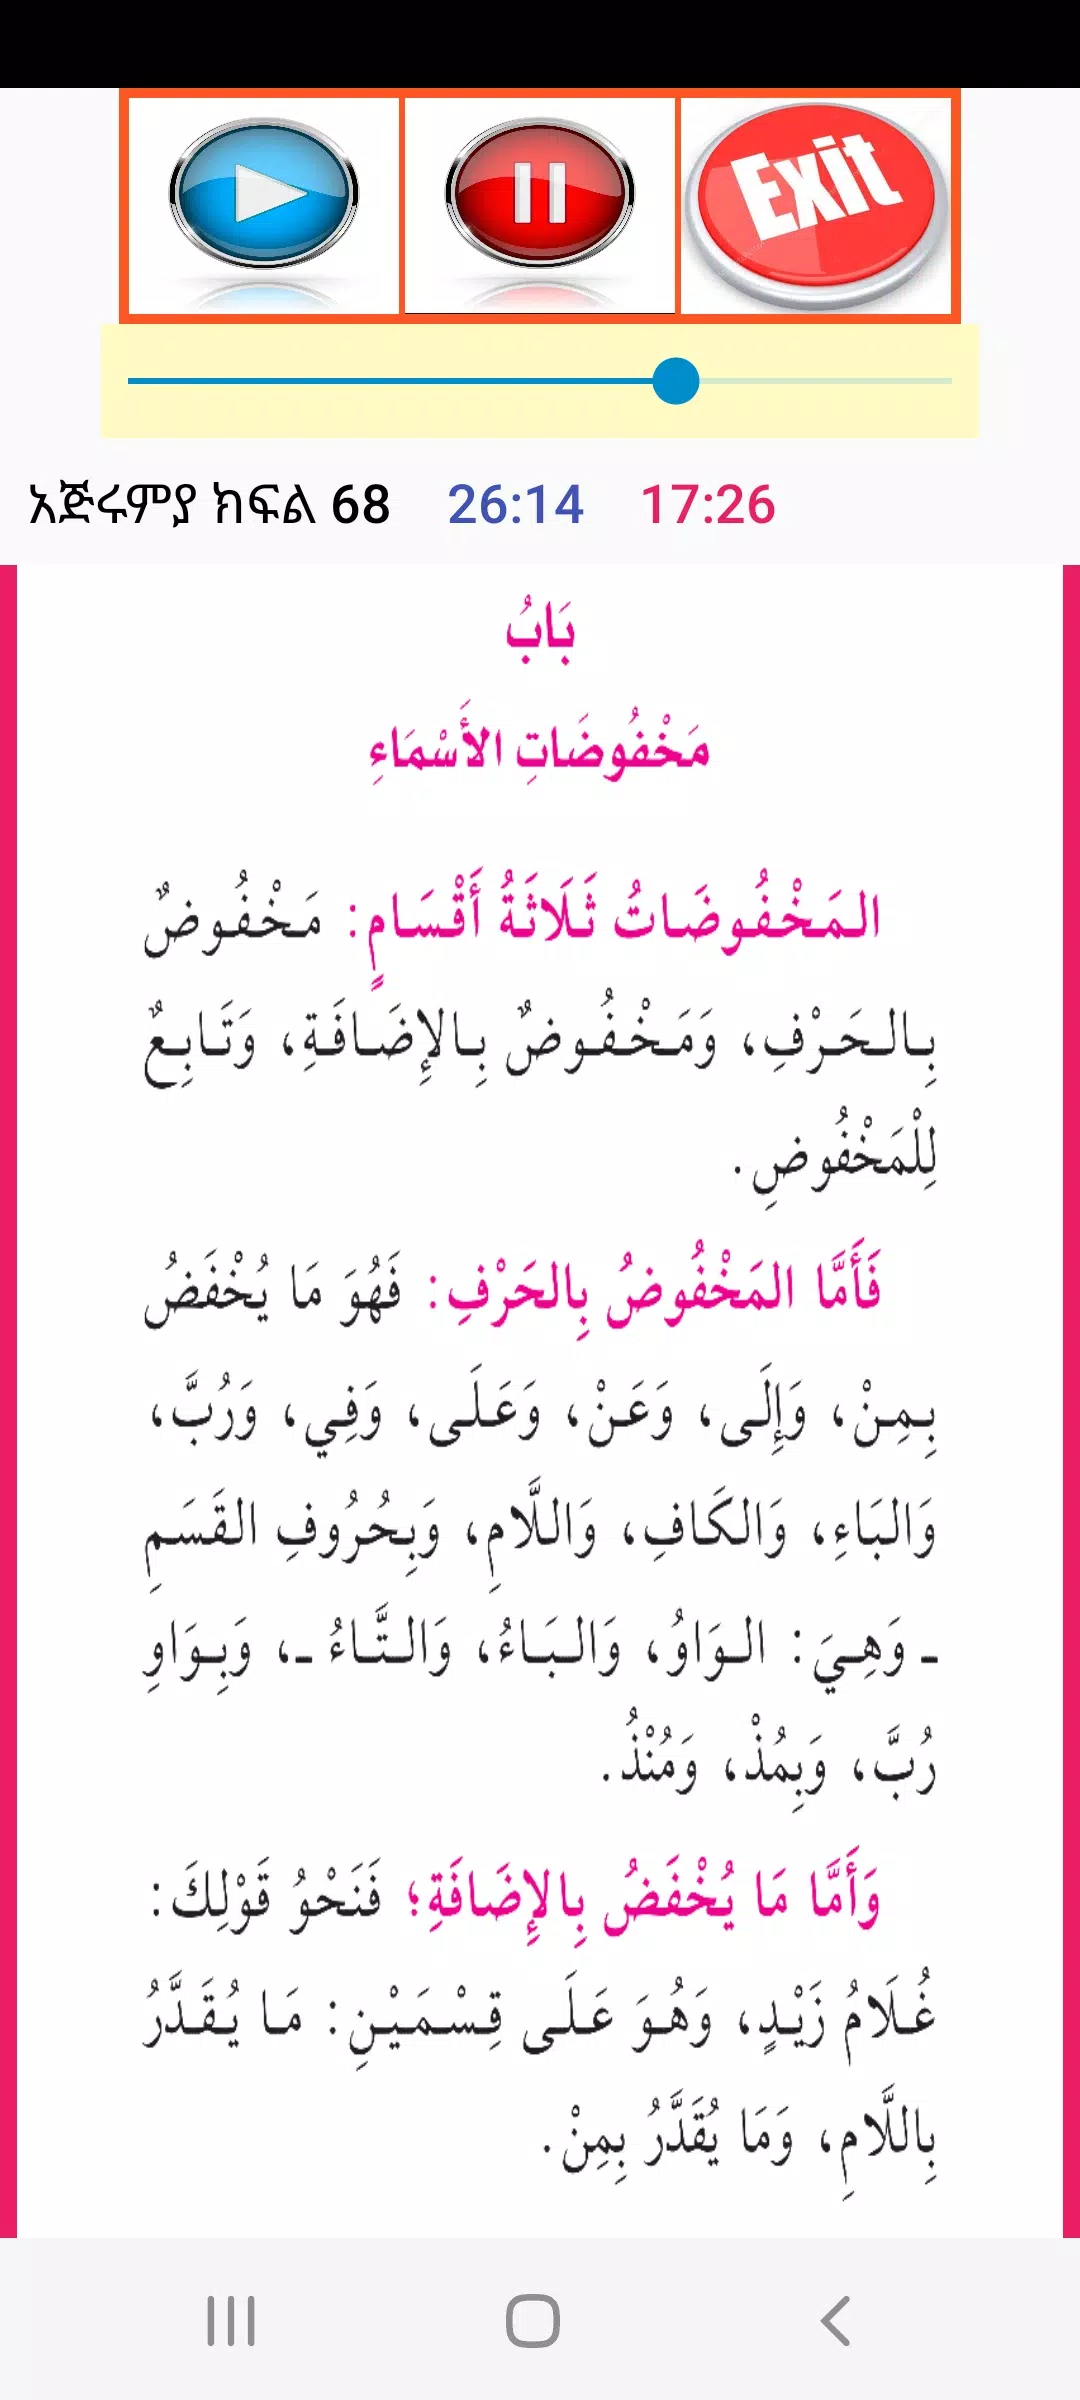 Exit
አጅሩምያ ክፍል 68 26:14 17:26
بَابُ
مَخْفُوضَاتِ الأَسْمَاءِ
المَخْفُوضَاتُ ثَلَاثَةُ أَقْسَامٍ: مَخْفُوضٌ
بِالحَرْفِ، وَمَخْفُوضٌ بِالإِضَافَةِ، وَتَابِعٌ
لِلْمَخْفُوضِ.
فَأَمَّا المَخْفُوضُ بِالحَرْفِ: فَهُوَ مَا يُخْفَضُ
بِمِنْ، وَإِلَى، وَعَنْ، وَعَلَى، وَفِي، وَرُبَّ،
وَالبَاءِ، وَالكَافِ، وَاللَّامِ، وَبِحُرُوفِ القَسَمِ
ـ وَهِيَ: الوَاوُ، وَالبَاءُ، وَالتَّاءُ ـ، وَبِوَاوِ
رُبَّ، وَبِمُذْ، وَمُنْذُ.
وَأَمَّا مَا يُخْفَضُ بِالإِضَافَةِ؛ فَنَحْوُ قَوْلِكَ:
غُلَامُ زَيْدٍ، وَهُوَ عَلَى قِسْمَيْنِ: مَا يُقَدَّرُ
بِاللَّامِ، وَمَا يُقَدَّرُ بِمِنْ.